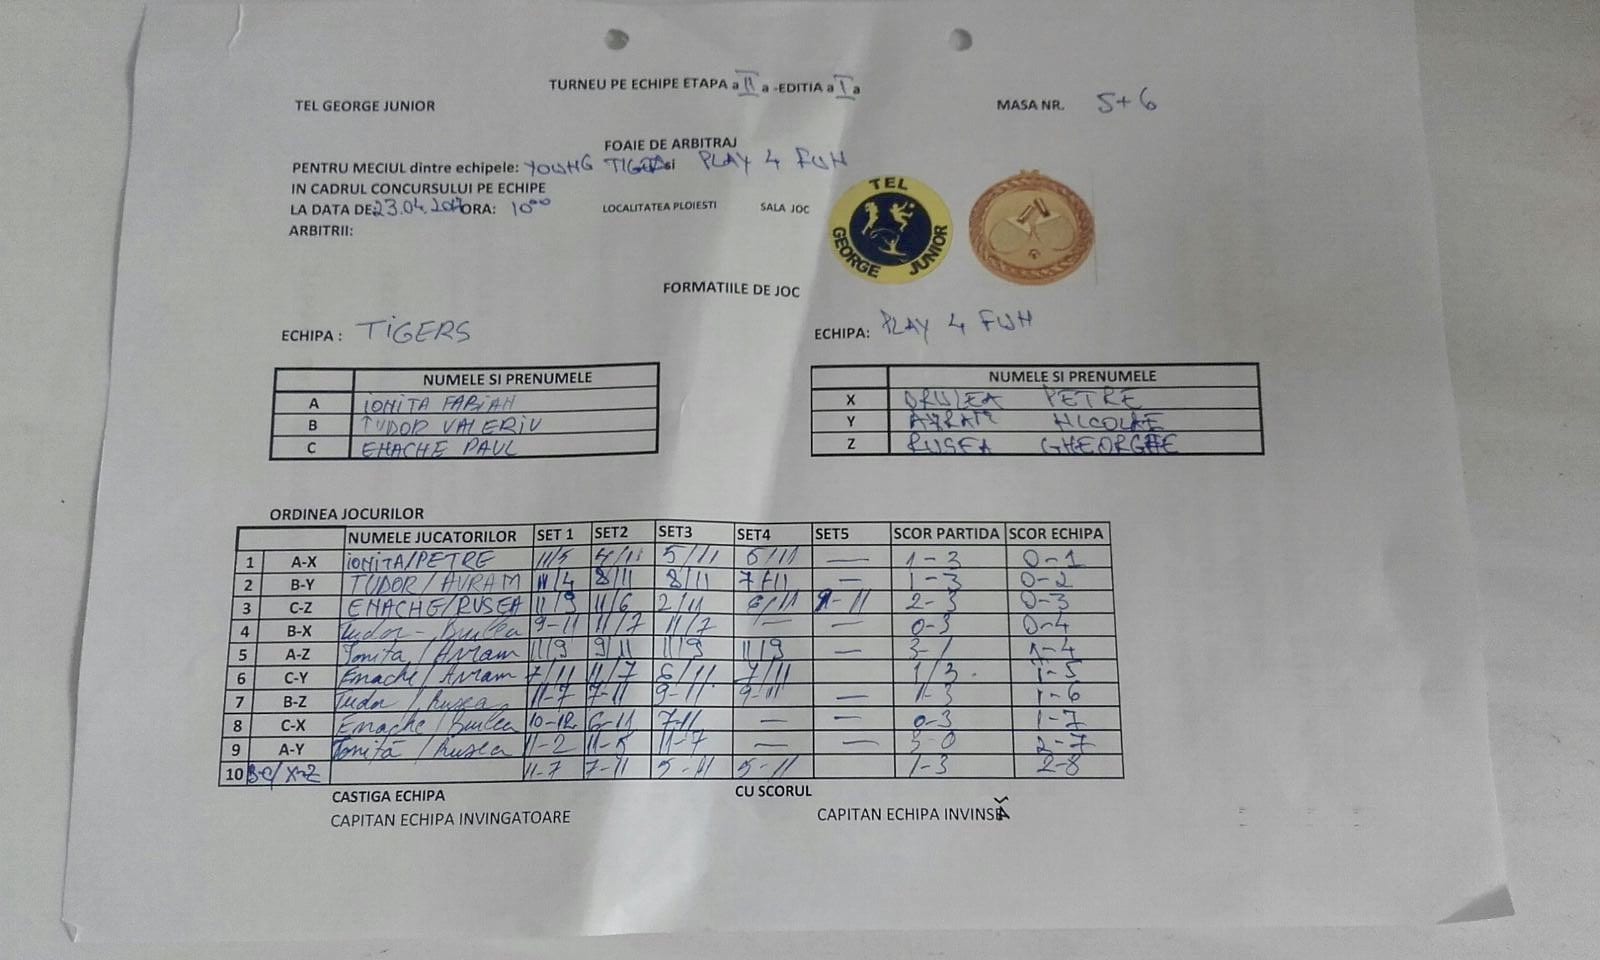 TURNEU PE ECHIPE ETAPA a II a -EDITIA a I a
TEL GEORGE JUNIOR MASA NR. 5+6
FOAIE DE ARBITRAJ
PENTRU MECIUL dintre echipele: YOUNG si PLAY 4 FUN
IN CADRUL CONCURSULUI PE ECHIPE
LA DATA DE: 23.04.2017 ORA: 10⁰⁰ LOCALITATEA PLOIESTI SALA JOC
ARBITRII:
TEL
GEORGE JUNIOR
FORMATIILE DE JOC
ECHIPA : TIGERS ECHIPA: PLAY 4 FUN
NUMELE SI PRENUMELE NUMELE SI PRENUMELE
A IONITA FABIAN X PETRE
B TUDOR VALERIU Y AVRAM NICOLAE
C ENACHE PAUL Z RUSEA GHEORGHE
ORDINEA JOCURILOR
NUMELE JUCATORILOR SET 1 SET2 SET3 SET4 SET5 SCOR PARTIDA SCOR ECHIPA
1 A-X IONITA/PETRE 11/5 4/11 5/11 6/11 — 1-3 0-1
2 B-Y TUDOR/AVRAM 11/4 8/11 8/11 7-11 — 1-3 0-2
3 C-Z ENACHE/RUSEA 11/9 11/6 2/11 6/11 9-11 2-3 0-3
4 B-X Tudor- 9-11 11/7 11/7 — — 0-3 0-4
5 A-Z Ionita/Avram 11/9 9/11 11/9 11/9 — 3-1 1-4
6 C-Y Enache/Avram 7/11 11/7 6/11 7/11 1/3 1-5
7 B-Z Tudor/Rusea 11-7 7-11 9-11 9-11 — 1-3 1-6
8 C-X Enache/ 10-12 6-11 7-11 — — 0-3 1-7
9 A-Y Ionită/Rusea 11-2 11-5 11-7 — — 3-0 2-7
10 B-C/X-Z 11-7 7-11 5-11 5-11 1-3 2-8
CASTIGA ECHIPA CU SCORUL
CAPITAN ECHIPA INVINGATOARE CAPITAN ECHIPA INVINSĂ